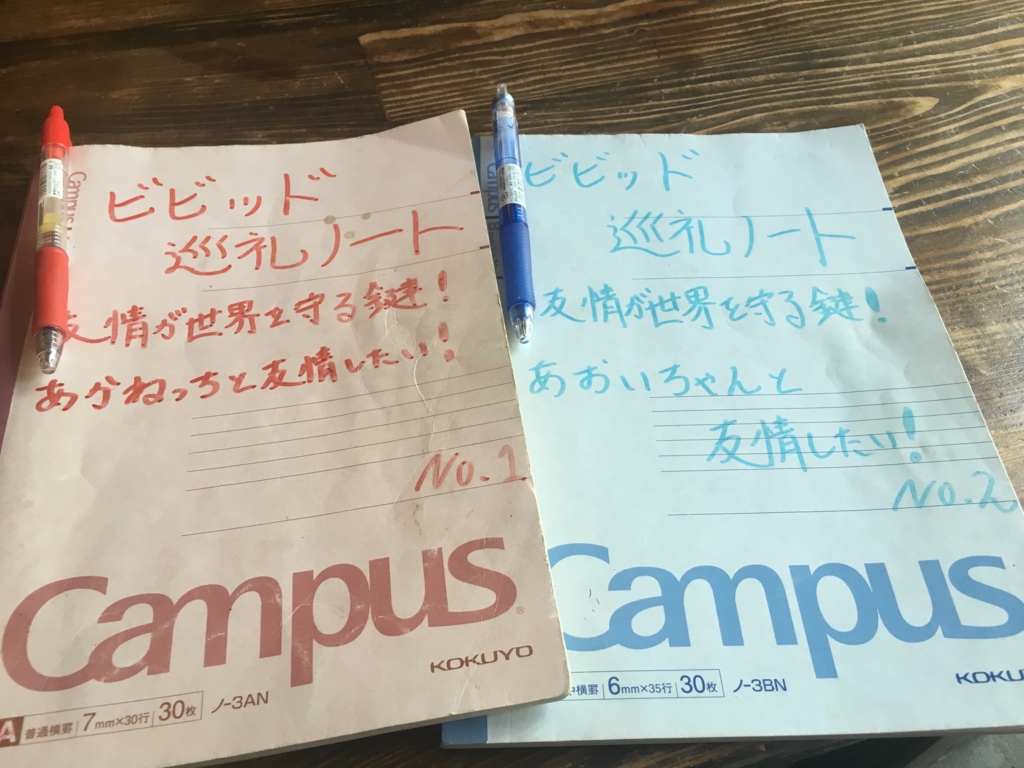 ビビッド
巡礼ノート
友情が世界を守る鍵!
あかねっちと友情したい!
No.1
Campus
KOKUYO
A 普通横罫 7mm×30行 30枚 ノ-3AN
ビビッド
巡礼ノート
友情が世界を守る鍵!
あおいちゃんと
友情したい!
No.2
Campus
横罫 6mm×35行 30枚 ノ-3BN